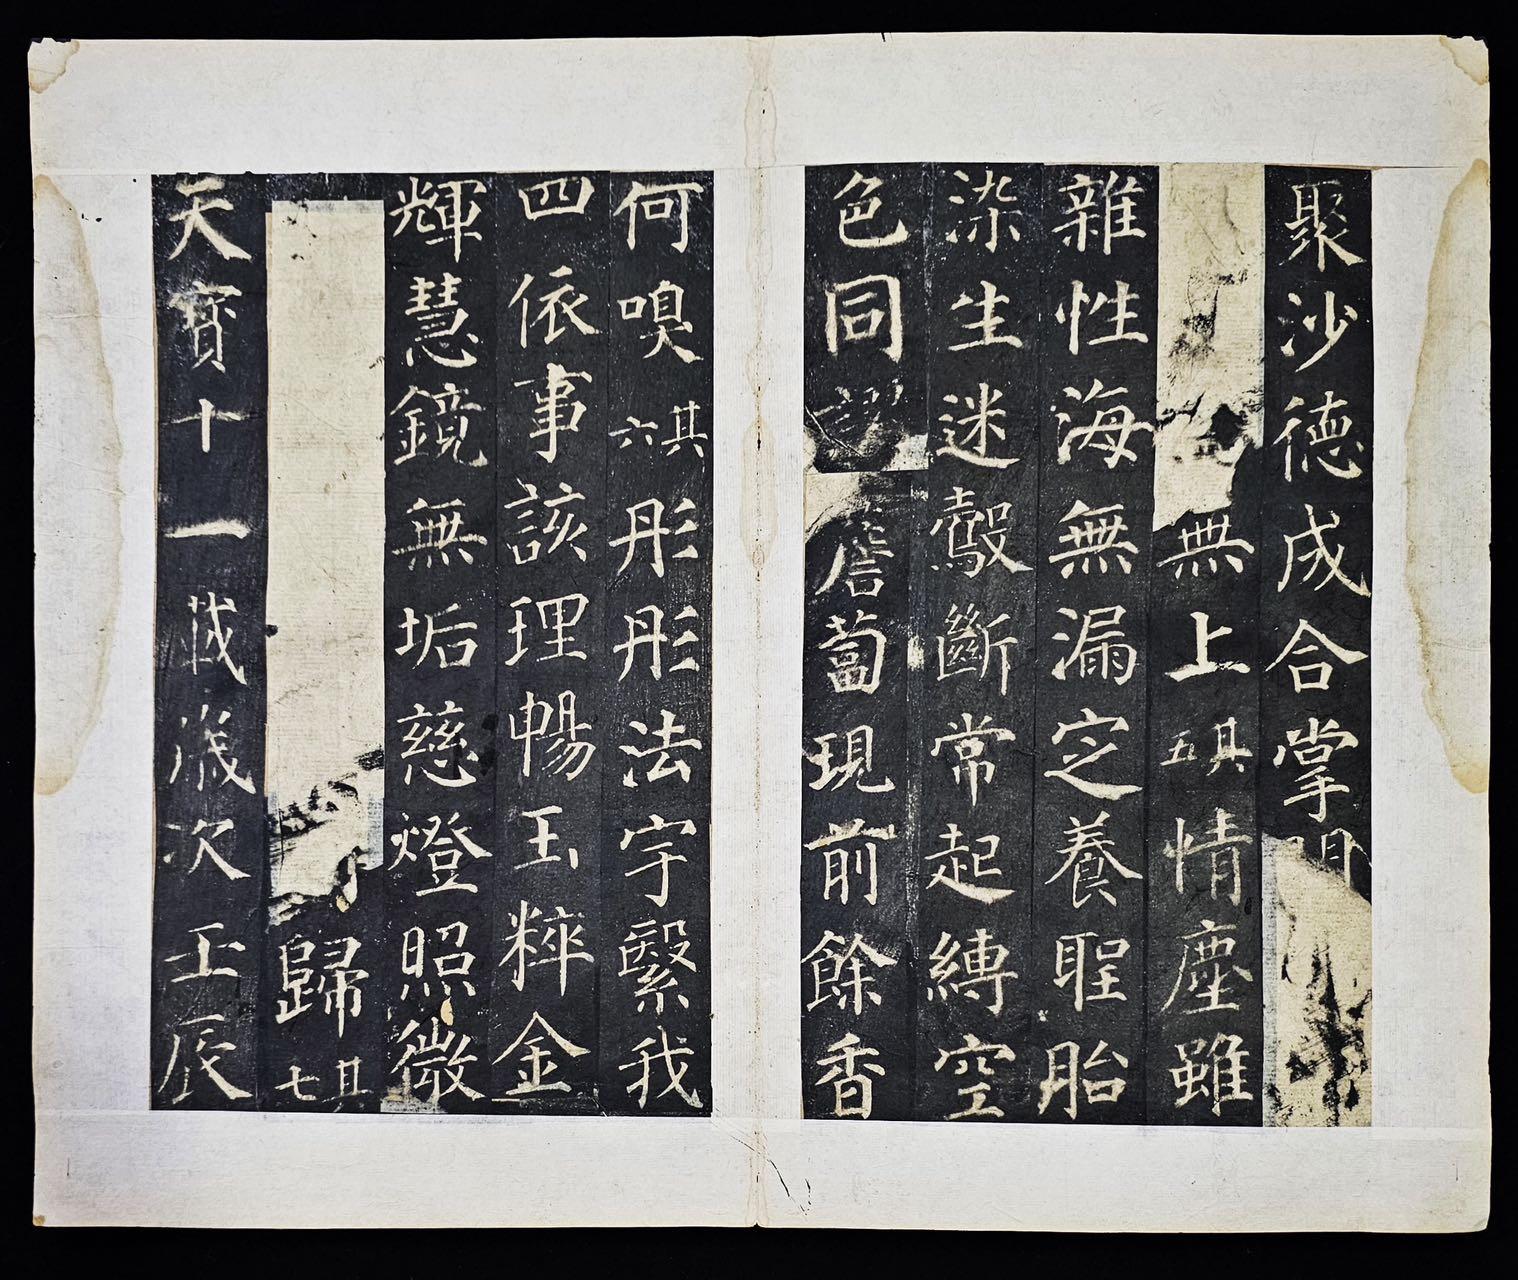 聚沙德成合掌
無上其五情塵雖
雜性海無漏定養聖胎
染生迷鷇斷常起縛空
色同謬薝蔔現前餘香
何嗅其六彤彤法宇繄我
四依事該理暢玉粹金
輝慧鏡無垢慈燈照微
歸其七
天寶十一載歲次壬辰